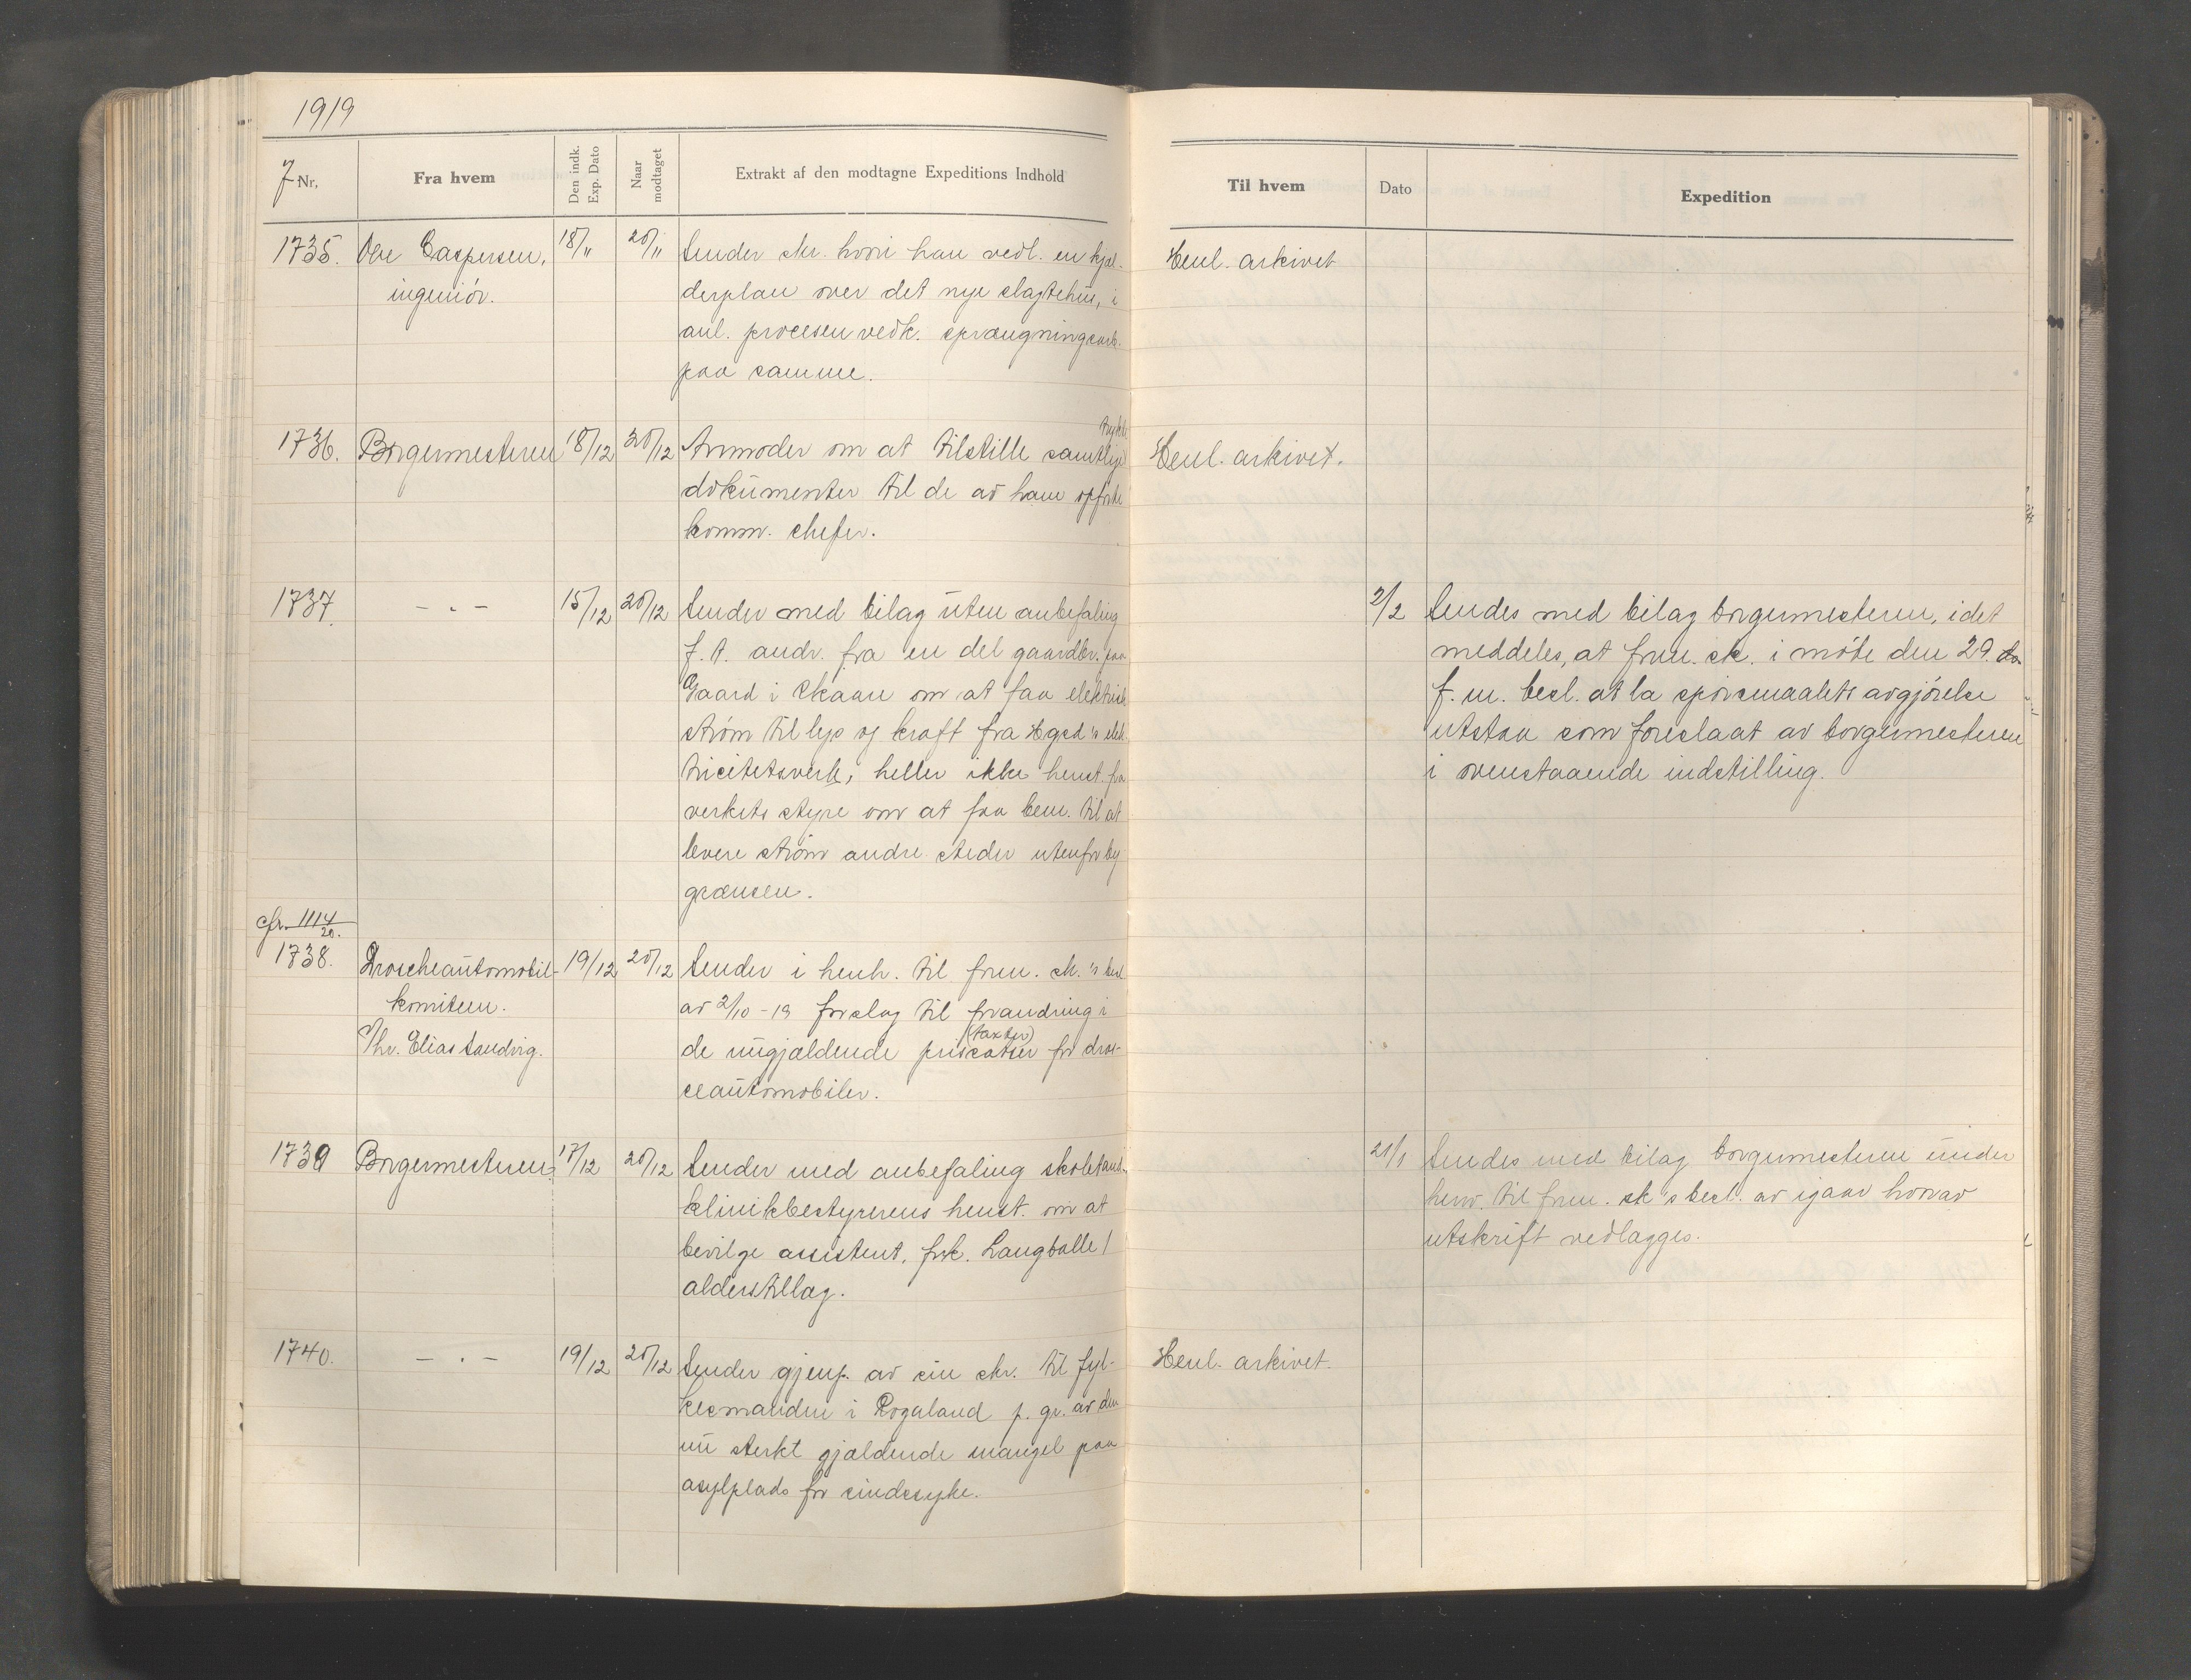 1919
J Nr.
Fra hvem
Den indk. Exp. Dato
Naar modtaget
Extrakt af den modtagne Expeditions Indhold
Til hvem
Dato
Expedition
1735. Ove Caspersen, 18/11 20/11 Sender skr. hvori han vedl. en kjæl- Henl. arkivet
ingeniør. derplan over det nye slagtehus, i
anl. procesen vedk. sprængningsarb.
paa samme.
trykte
1736. Borgermesteren 18/12 20/12 Anmoder om at tilstille samtlige Henl. arkivet.
dokumenter til de av ham opførte
komm. chefer.
1737. — " — 15/12 20/12 Sender med bilag uten anbefaling 2/2 Sendes med bilag borgermesteren, idet
f. t. andr. fra en del gaardbr. paa meddeles, at form. sk. i møte den 29.
Gaard i Skaare om at faa elektrisk f. m. besl. at la spørsmaalets avgjørelse
strøm til lys og kraft fra Hgsd's elek- utstaa som foreslaat av borgermesteren
tricitetsverk, heller ikke henst. fra i ovenstaaende indstilling.
verkets styre om at faa bem. til at
levere strøm andre steder utenfor by-
grænsen.
cfr. 1114/20.
1738. Droscheautomobil- 19/12 20/12 Sender i henh. til form. sk.'s besl.
komiteen. av 2/10-19 forslag til forandring i
(taxter)
v/hr. Elias Sandvig. de nugjældende prissatser for dros-
ceautomobiler.
1739 Borgermesteren. 17/12 20/12 Sender med anbefaling skoletand- 21/1 Sendes med bilag borgermesteren under
klinikbestyrerens henst. om at henv. til form. sk's besl. av igaar hvorav
bevilge assistent, frk. Langballe 1 utskrift vedlægges.
alderstillæg.
1740. — " — 19/12 20/12 Sender gjenp. av sin skr. til fyl- Henl. arkivet.
kesmanden i Rogaland p. gr. av den
nu sterkt gjældende mangel paa
asylplads for sindssyke.